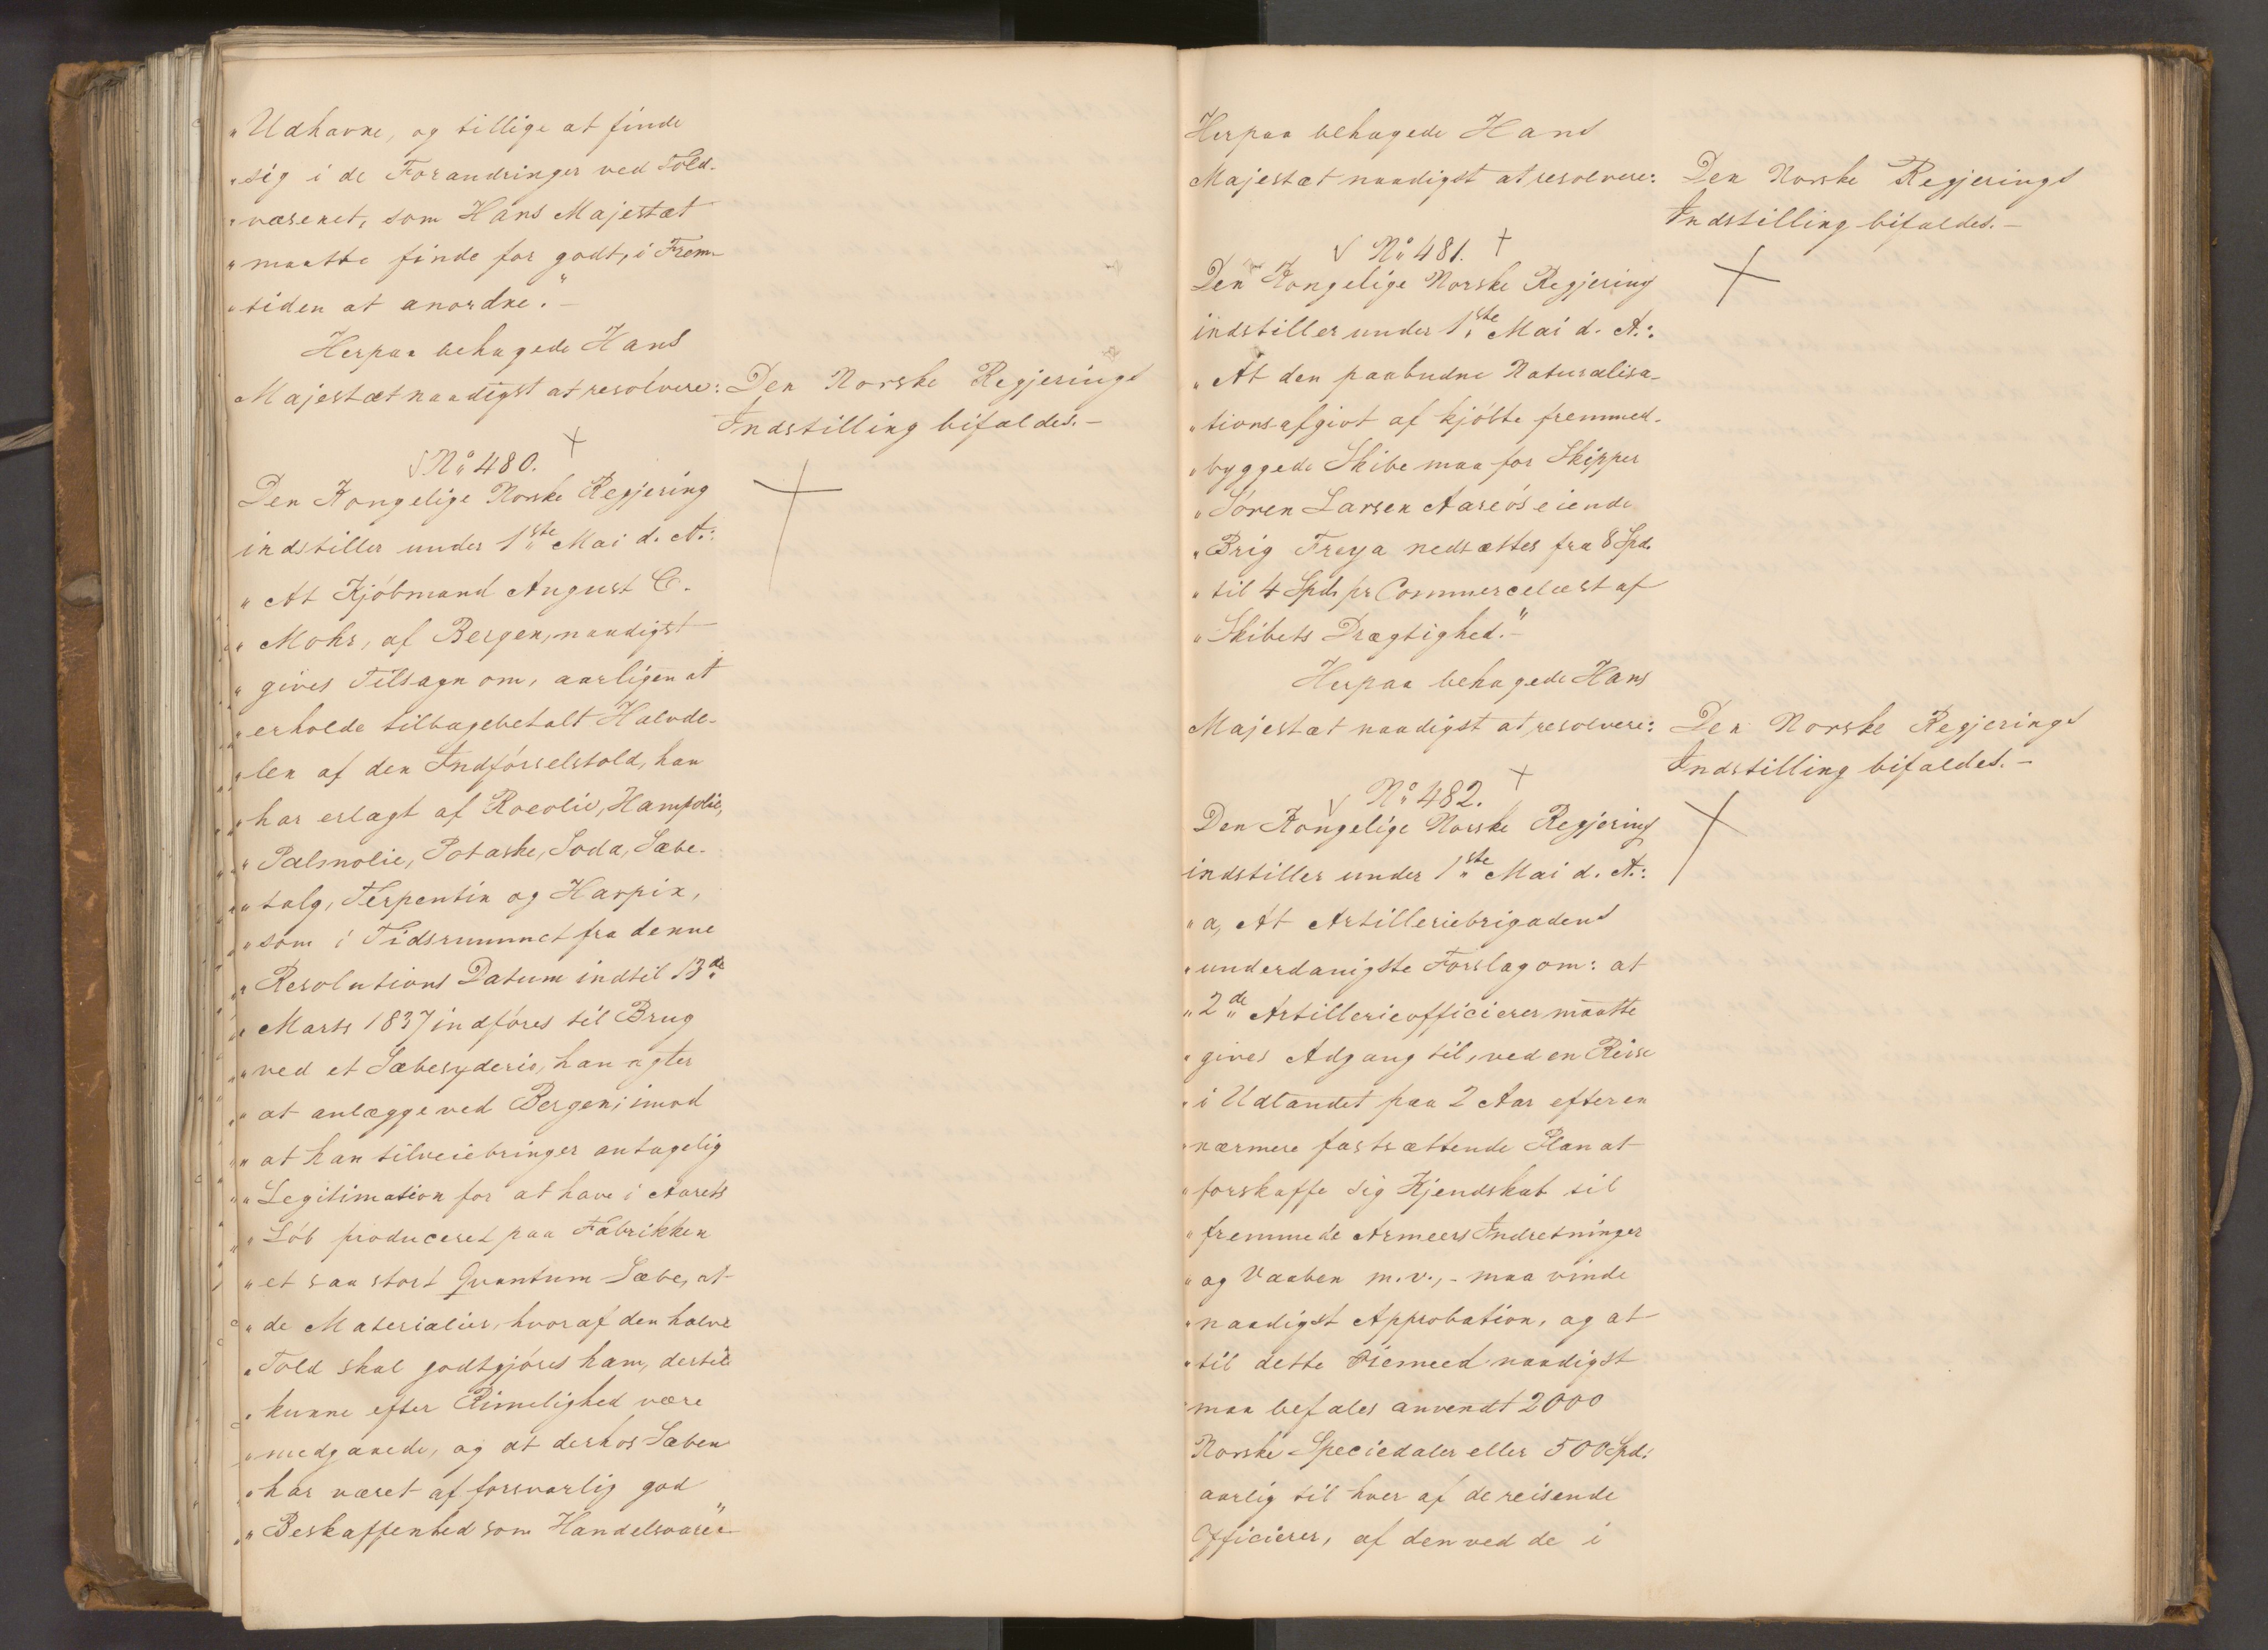 "Udhavne, og tillige at finde
"sig i de Forandringer ved Told-
"væsenet, som Hans Majestæt
"maatte finde for godt, i Frem-
"tiden at anordne."-
Herpaa behagede Hans
Majestæt naadigst at resolvere:
Den Norske Regjerings
Indstilling bifaldes.-
No 480.
Den Kongelige Norske Regjering
indstiller under 1ste Mai d. A.:
"At Kjöbmand August C.
"Mohr, af Bergen, naadigst
"gives Tilsagn om, aarligen at
"erholde tilbagebetalt Halvde-
"len af den Indförselstold, han
"har erlagt af Roeolie, Hampolie,
"Palmolie, Potaske, Soda, Sæbe-
"talg, Terpentin og Harpix,
"som i Tidsrummet fra denne
"Resolutions Datum indtil 13de
"Marts 1837 indföres til Brug
"ved et Sæbesyderie, han agter
"at anlægge ved Bergen; imod
"at han tilveiebringer antagelig
"Legitimation for at have i Aarets
"Löb produceret paa Fabrikken
"et saa stort Qvantum Sæbe, at
"de Materialier, hvoraf den halve
"Told skal godtgjöres ham, dertil
"kunne efter Rimelighed være
"medgaaede, og at derhos Sæben
"har været af forsvarlig god
"Beskaffenhed som Handelsvare"
Herpaa behagede Hans
Majestæt naadigst at resolvere:
Den Norske Regjerings
Indstilling bifaldes.-
No 481.
Den Kongelige Norske Regjering
indstiller under 1ste Mai d. A.:
"At den paabudne Naturalisa-
"tionsafgivt af kjöbte fremmed-
"byggede Skibe maa for Skipper
"Sören Larsen Aaseös eiende
"Brig Freya nedsættes fra 8 Spd.
"til 4 Spd. pr Commercelæst af
"Skibets Drægtighed."-
Herpaa behagede Hans
Majestæt naadigst at resolvere:
Den Norske Regjerings
Indstilling bifaldes.-
No 482.
Den Kongelige Norske Regjering
indstiller under 1ste Mai d. A.:
"a, At Artilleriebrigadens
"underdanigste Forslag om: at
"2de Artillerieofficierer maatte
"gives Adgang til, ved en Reise
"i Udlandet paa 2 Aar efter en
"nærmere fastsættende Plan at
"forskaffe sig Kjendskab til
"fremmede Armeers Indretninger
"og Vaaben m.v.,- maa vinde
"naadigst Approbation, og at
"til dette Öiemeed naadigst
"maa befales anvendt 2000
Norske Speciedaler eller 500 Spd.
aarlig til hver af de reisende
Officierer, af den ved de i